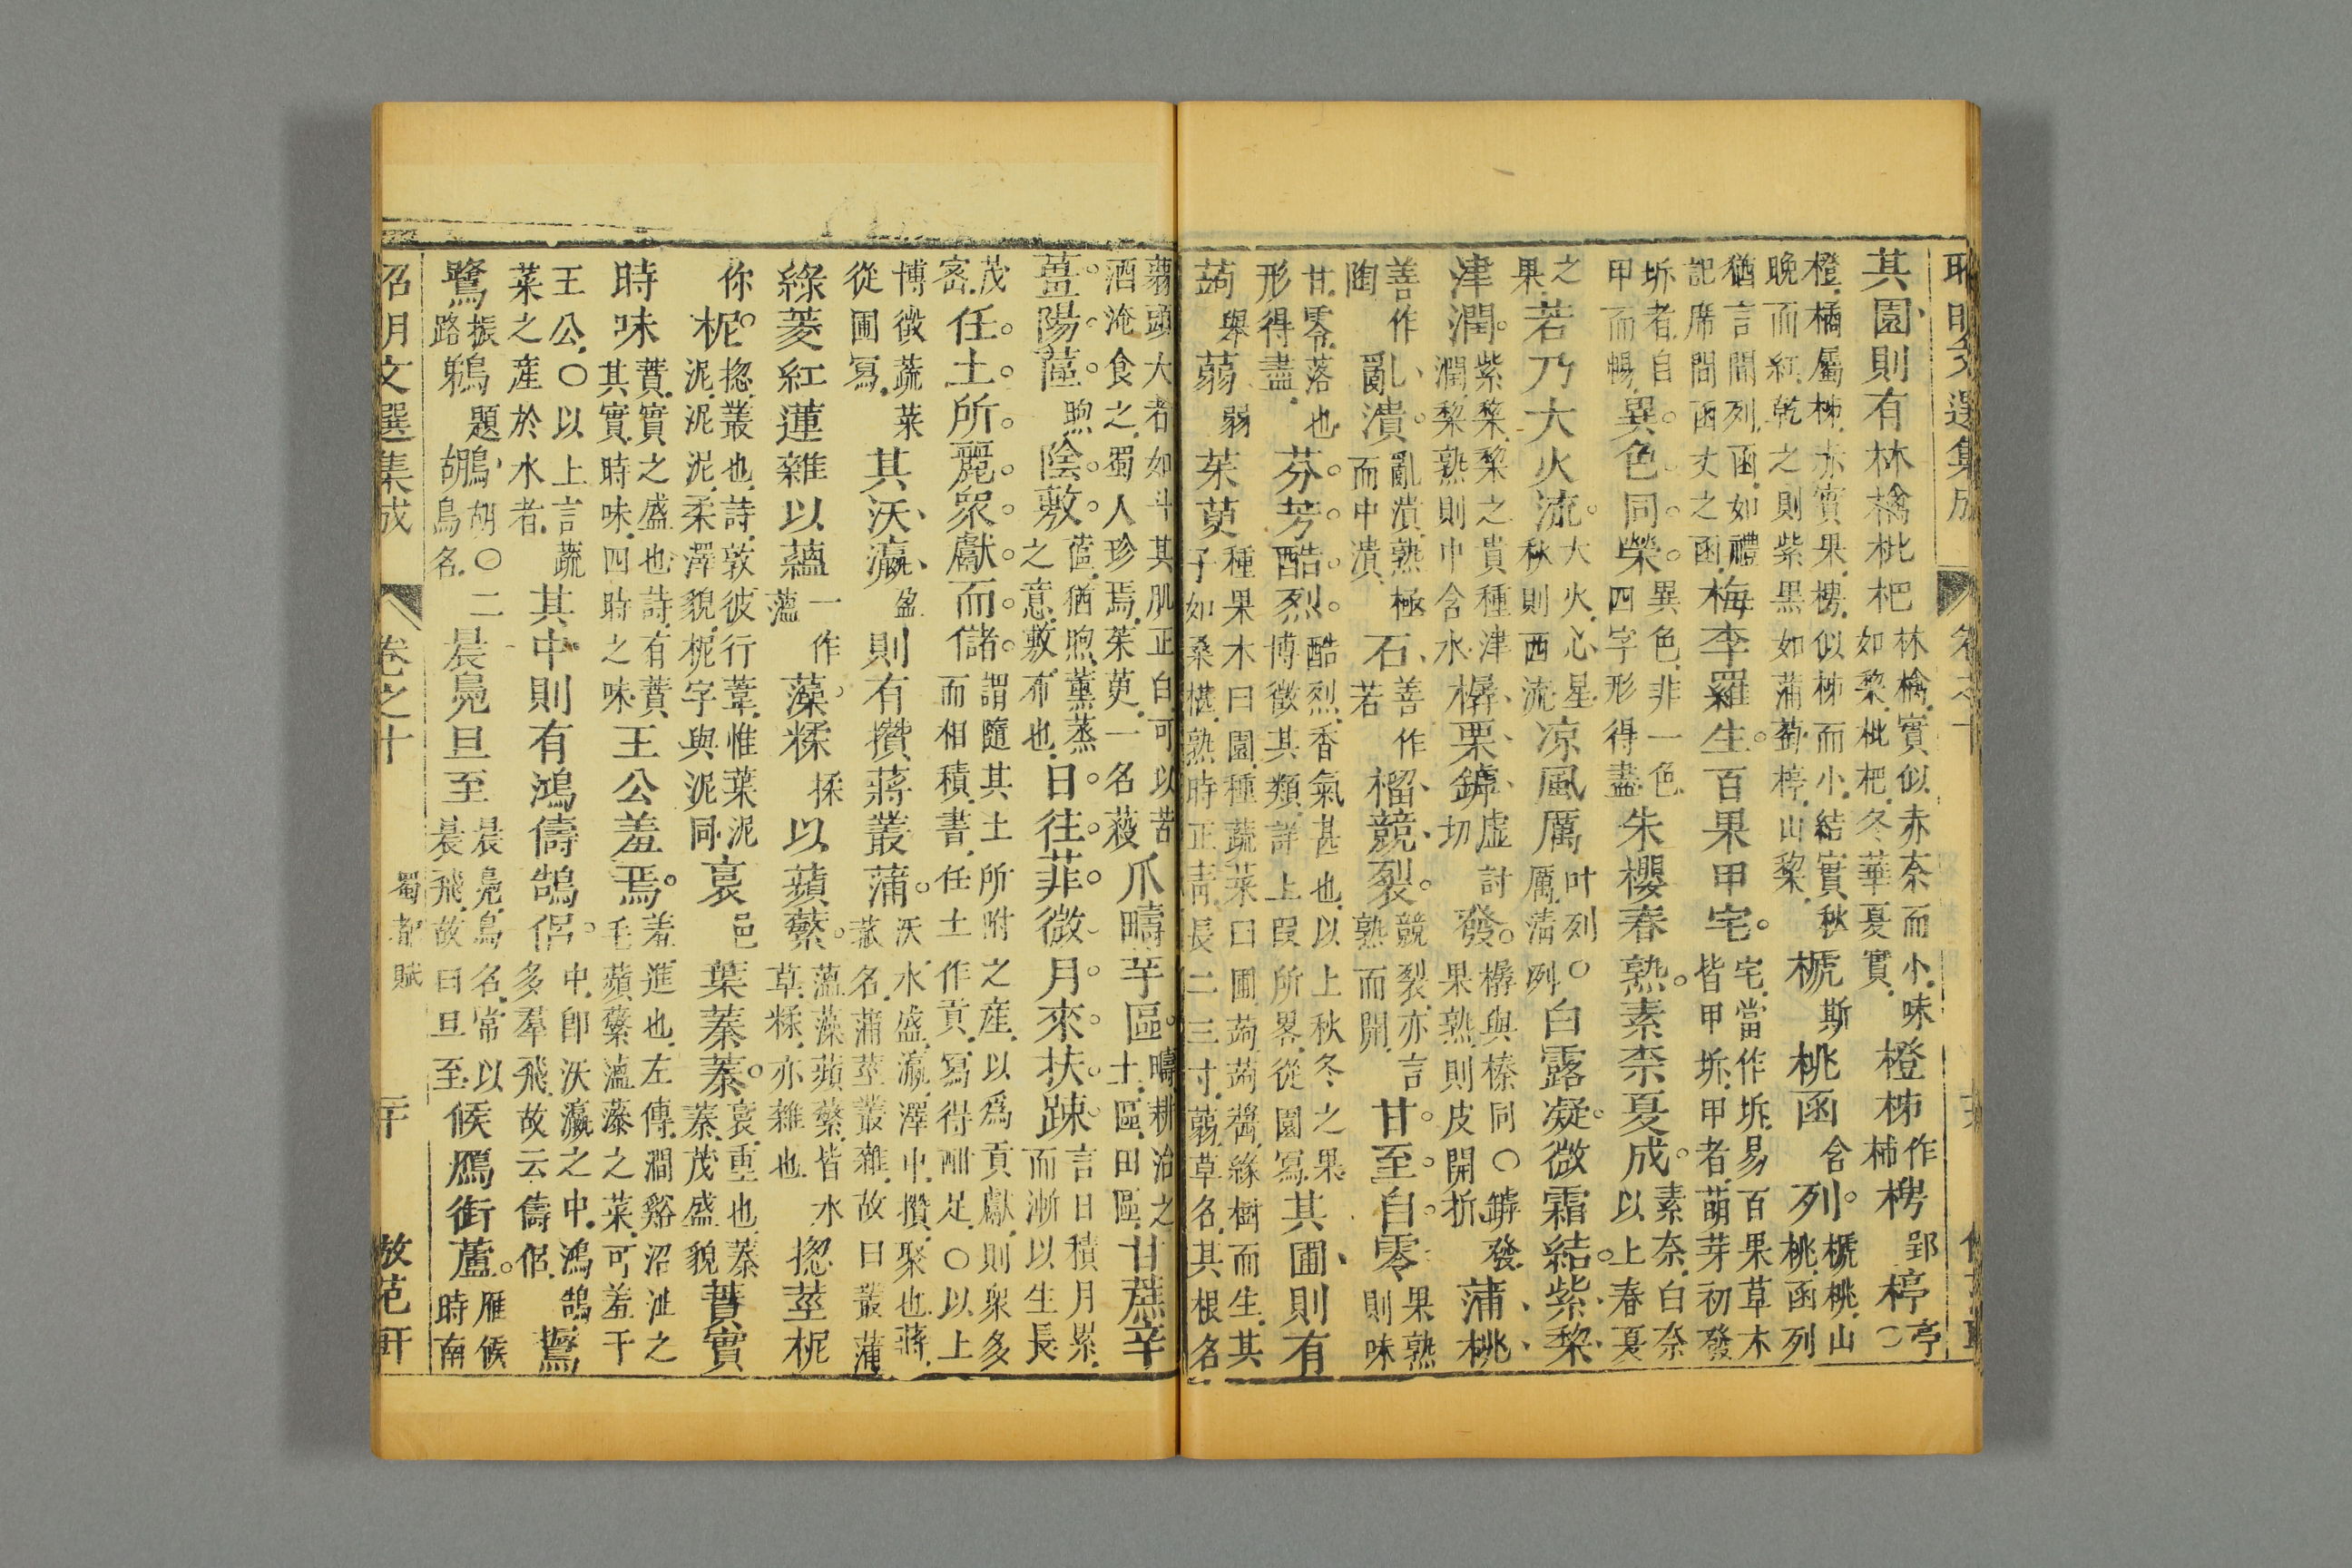 明文選集成 卷之十
其園、則有林檎枇杷林檎.實似.赤柰而小.味如黎.枇杷.冬華夏實.橙柹作柿梬郢楟亭〇
橙.橘屬.柹.赤實果.梬.似柹而小.結實秋晚而紅.乾之則紫黑如蒲萄.楟.山黎.榹斯桃函含列。榹桃.山桃.函列
猶言間列.函.如禮記席間函丈之函.梅李羅生。百果甲宅。宅.當作坼.易百果草木皆甲坼.甲者.萌芽初發
坼者.自甲而暢.異色。同榮。異色.非一色四字形得盡朱櫻春熟。素柰夏成。素柰.白柰以上春夏
之果.若乃大火流。大火.心星.秋則西流凉風厲叶列〇厲.清冽白露凝。微霜結。紫黎、
津潤。紫棃.棃之貴種津潤.棃熟則中含水樼、栗、罅、虛討切發。樼與榛同〇罅發.果熟.則皮開折蒲、桃、
善作陶亂、潰。亂潰.熟極而中潰.石、善作若榴、競、裂。競裂.亦言熟而開.甘。至。自。零果熟則味
甘.零.落也形得盡.芬。芳。酷。烈。酷烈.香氣甚也.以上秋冬之果博徵其類.詳上段所畧.從園寫其圃、則有
蒟舉蒻弱茱萸種果木曰園.種蔬菜曰圃.蒟.蒟醬.緣樹而生.其子如桑椹.熟時正青.長二三寸.蒻.草名.其根名
蒻頭大者如斗.其肌正白.可以苦酒淹食之.蜀人珍焉.茱萸.一名蔱瓜疇芋區。疇.耕治之土.區.田區甘蔗辛
薑。陽。蓲。煦陰。敷。蓲.猶煦.薰蒸之意.敷.布也.日。往。菲。微。月。來。扶。踈。言日積月累.而漸以生長
茂密.任。土。所。麗。眾。獻。而。儲。謂隨其土所附之產.以為貢獻.則眾多而相積.書.任土作貢.寫得酣足.〇以上
博徵蔬菜從圃寫.其沃、瀛、盈則有攢蔣叢蒲。沃.水盛.瀛.澤中.攢.聚也.蔣.菰名.蒲莖叢雜.故曰叢蒲
綠菱紅蓮雜以蘊一作薀藻。糅揉以蘋蘩。薀藻蘋蘩.皆水草.糅.亦雜也揔莖柅
你柅。揔.叢也.詩.敦彼行葦.惟葉泥泥.泥泥.柔澤貌.柅字與泥同.裛邑葉蓁蓁。裛.重也.蓁蓁.茂盛貌蕡實
時味蕡.實之盛也.詩.有蕡其實.時味.四時之味王公羞焉。羞.進也.左傳.澗谿沼沚之毛.蘋蘩薀藻之菜.可羞于
王公.〇以上言蔬菜之産於水者.其中則有鴻儔鵠侶。中.卽沃瀛之中.鴻鵠多羣飛.故云儔侶.鷖
鷺振路鵜題鶘胡〇二鳥名.晨鳧旦至晨鳧.鳥名.常以晨飛.故曰旦至.候鴈銜蘆。雁候時南
昭明文選集成 卷之十 蜀都賦 二十 倣范軒